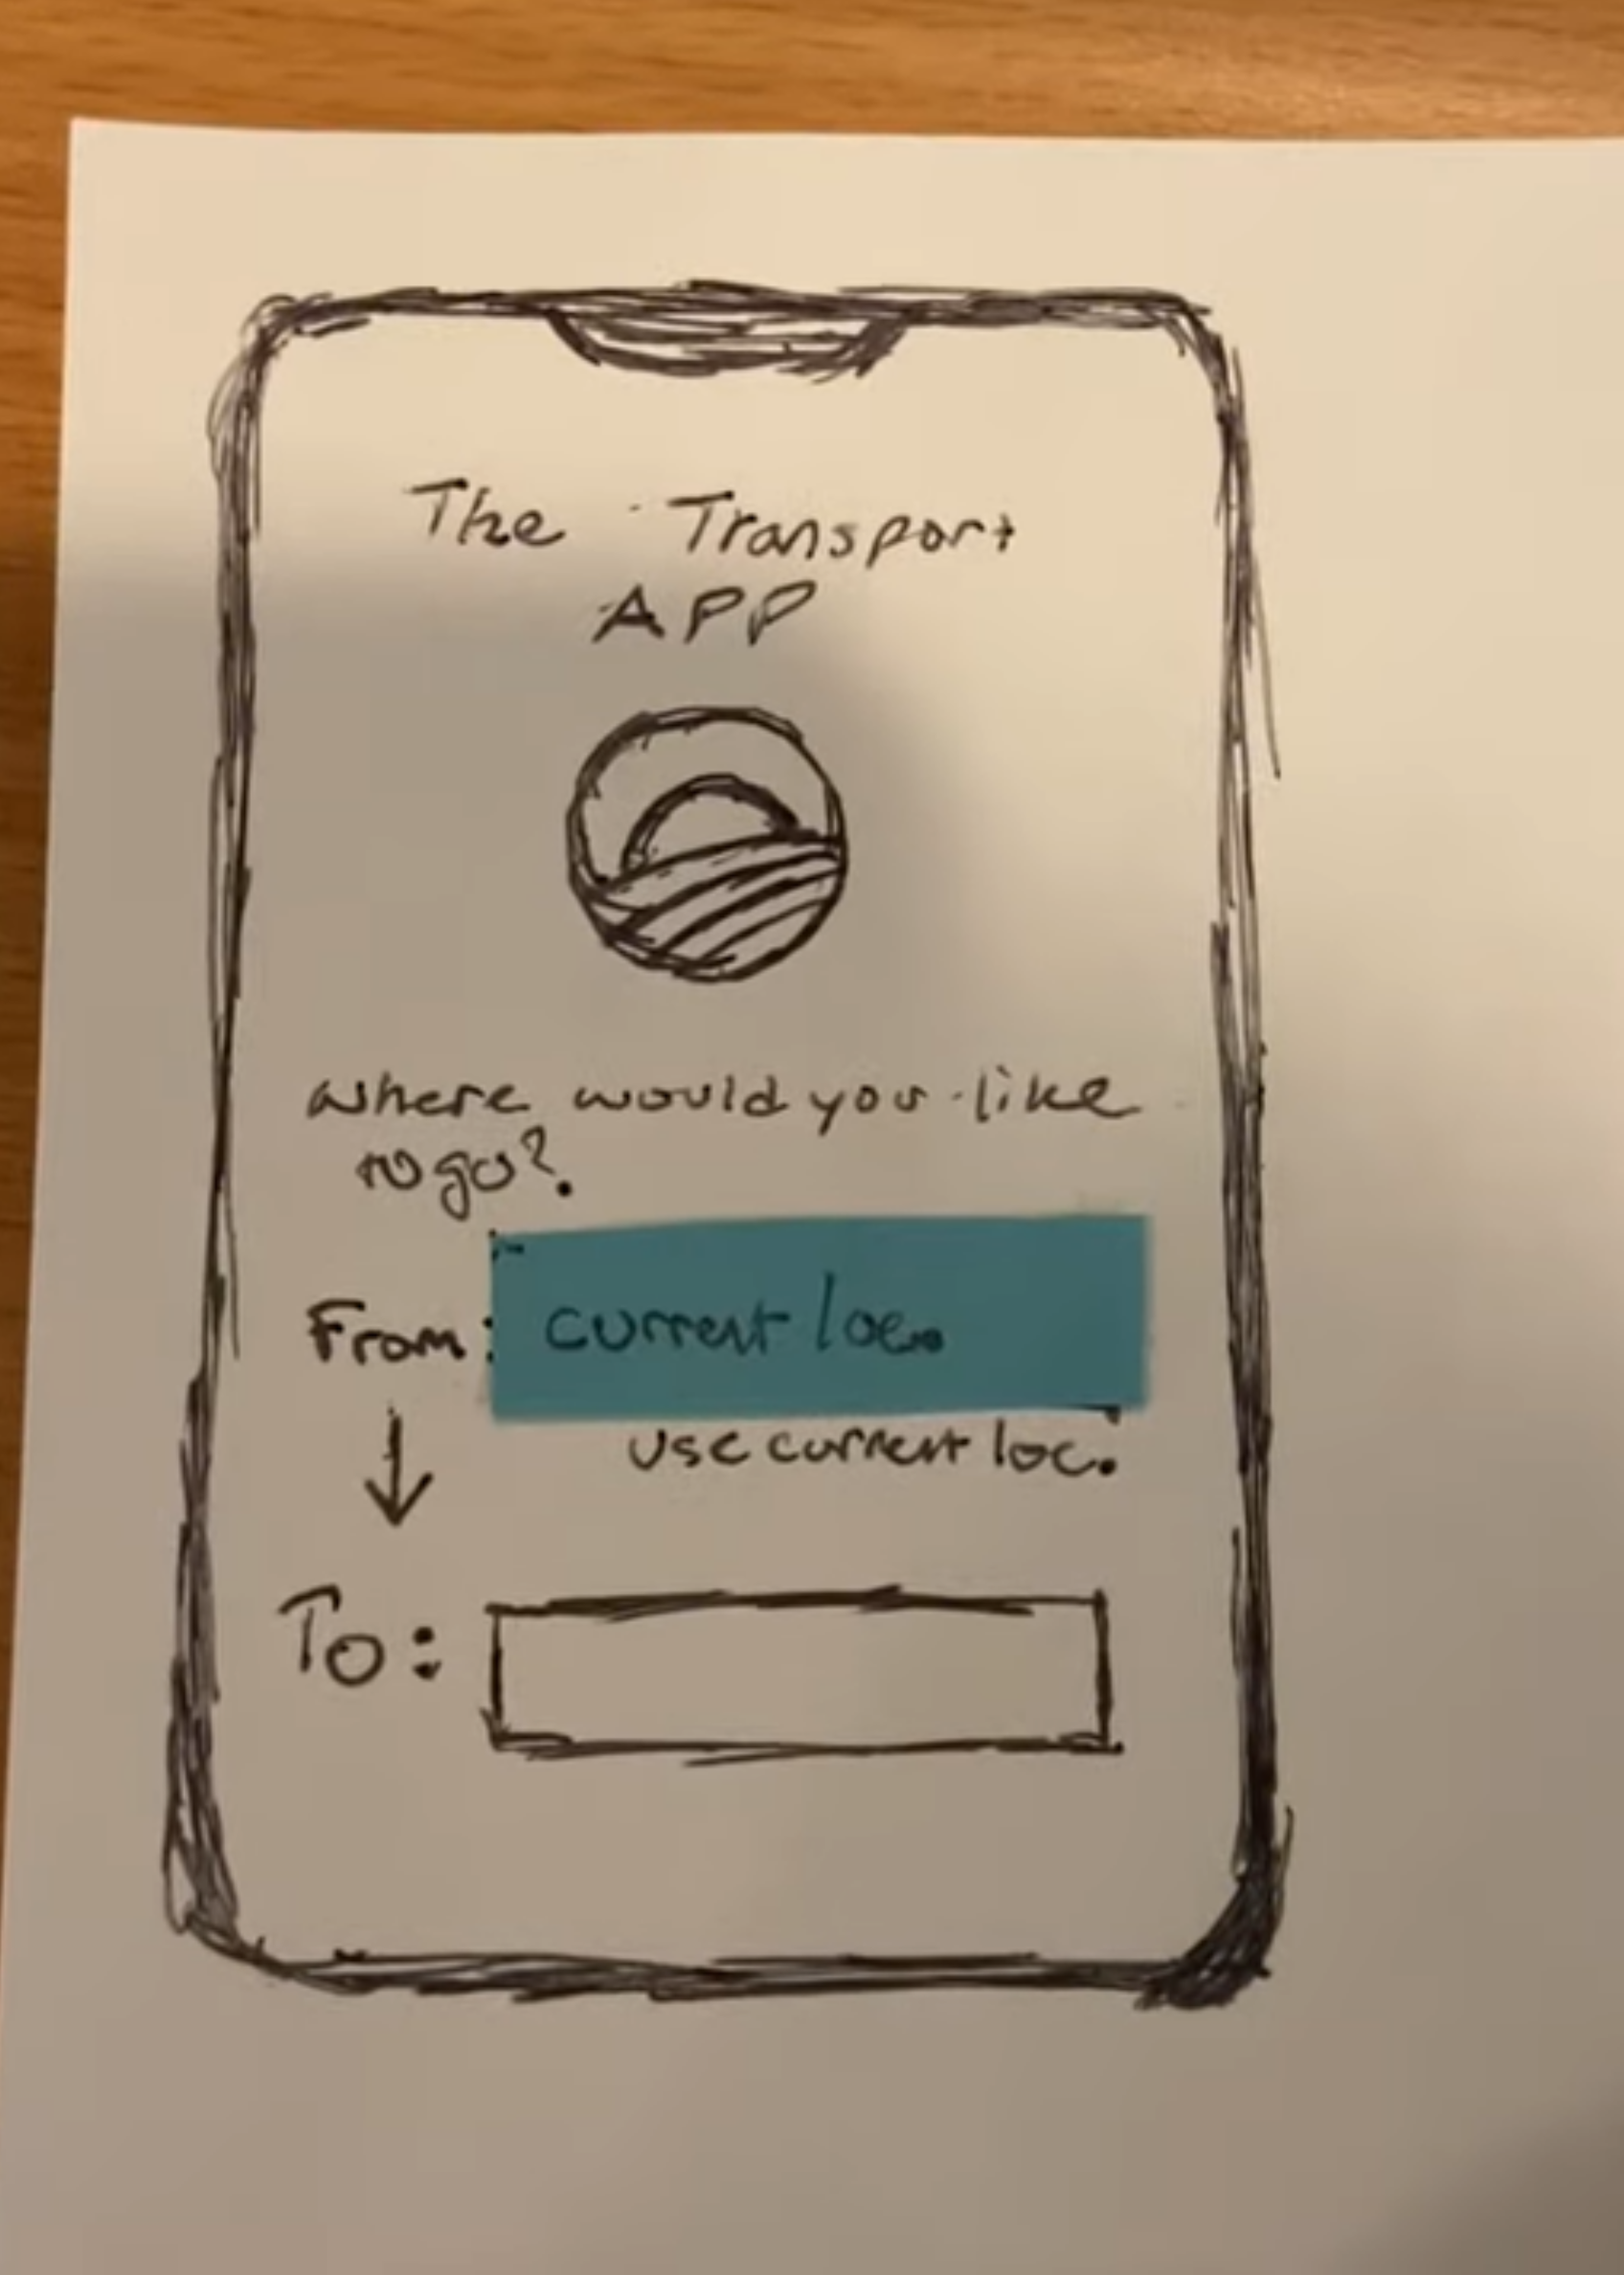 The Transport
APP
where would you like
to go?
From: current loc.
use current loc.
To: